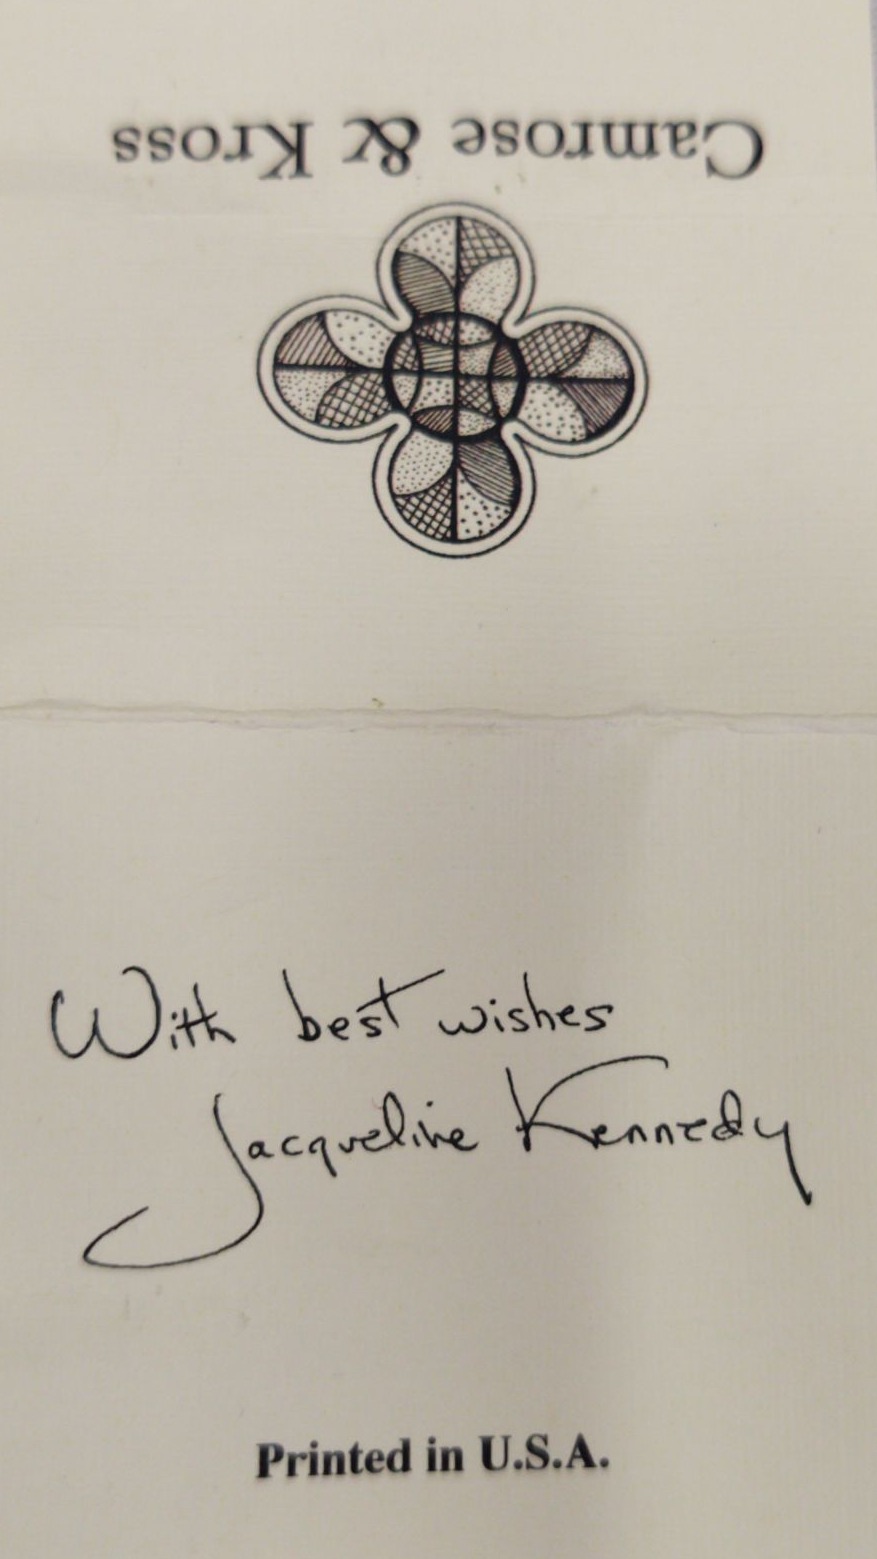 Camrose & Kross
With best wishes
Jacqueline Kennedy
Printed in U.S.A.